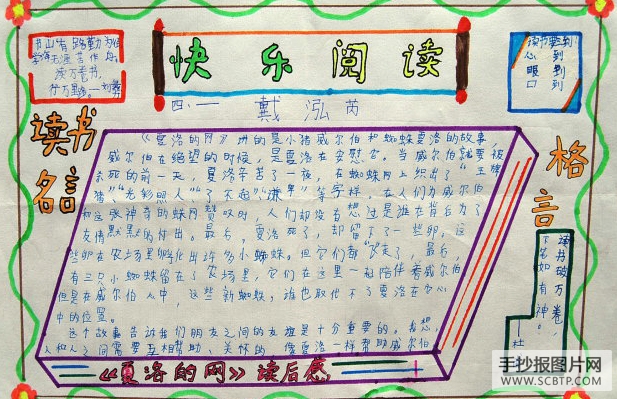 书山有路勤为径
学海无涯苦作舟
读万卷书,
行万里路。
快乐阅读
读书要三到
心到
眼到
口到
四、一 戴泓芮
读书
名言
格言
《夏洛的网》讲的是小猪威尔伯和蜘蛛夏洛的故事
威尔伯在绝望的时候,是夏洛在安慰它。当威尔伯就要被
杀死的前一天,夏洛辛苦了一夜,在蜘蛛网上织出了“王牌
猪”“光彩照人”“了不起”“谦卑”等字样。在人们为威尔伯
和这张神奇的蛛网赞叹时,人们却没有想过是谁在背后为了
友情默默的付出。最后,夏洛死了,却留下了一些卵。这
些卵在农场里孵化出许多小蜘蛛。但它们都飞走了,最后,
有三只小蜘蛛留在了农场里,它们在这里一起陪伴着威尔伯
但是在威尔伯心中,这些新蜘蛛,谁也取代不了夏洛在它心
中的位置。
这个故事告诉我们朋友之间的友谊是十分重要的。我想,
人和人之间需要互相帮助、关怀的,像夏洛一样帮助威尔伯
《夏洛的网》读后感
读书破万卷,
下笔如有神。
杜
手抄报图片网
WWW.SCBTP.COM